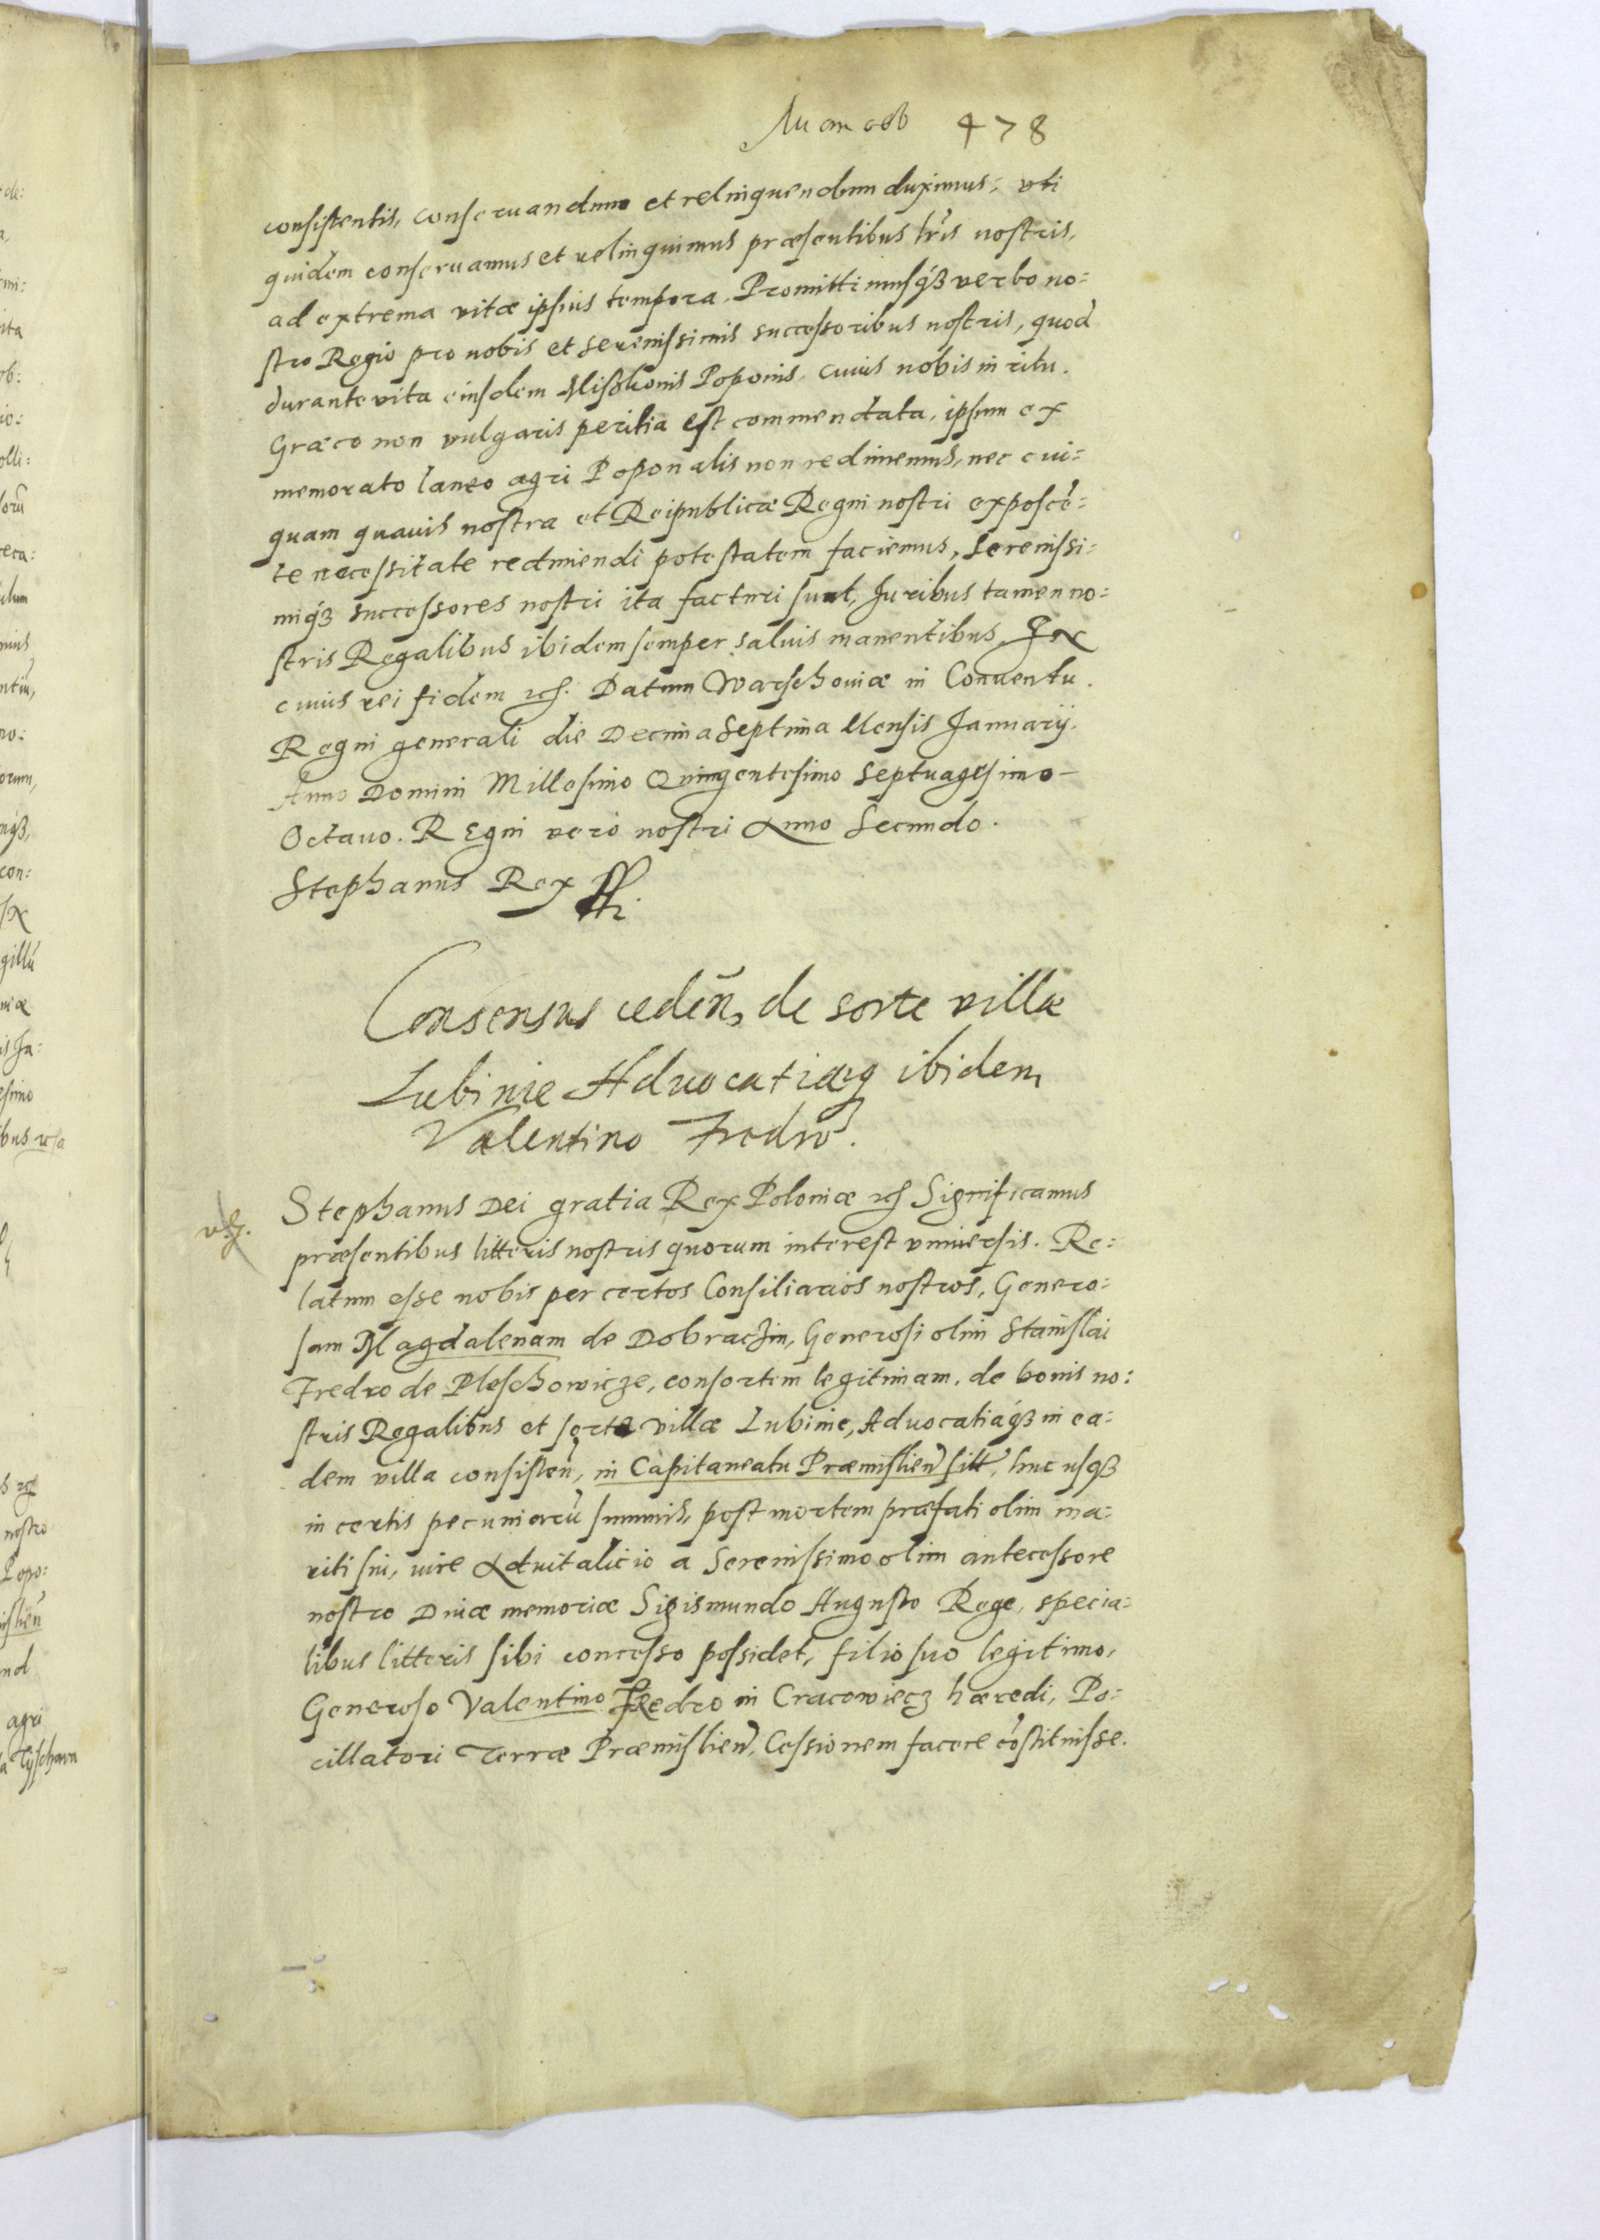 478
consistentis, conseruandum et relinquendum duximus, vti
quidem conseruamus et relinquimus præsentibus lr̃is nostris,
ad extrema vitæ ipsius tempora. Promittimusq́ꝫ verbo no:
stro Regio pro nobis et serenissimis successoribus nostris, quod
durante vita eiusdem Misskonis Poponis, cuius nobis in ritu
Græco non vulgaris peritia est commendata, ipsum ex
memorato laneo agri Poponalis non redimemus, nec cui:
quam quauis nostra et Reipublicæ Regni nostri exposcẽ:
te necessitate redimendi potestatem faciemus, Serenissi:
miq́ꝫ successores nostri ita facturi sunt, Iuribus tamen no:
stris Regalibus ibidem semper saluis manentibus. In
cuius rei fidem etc. Datum Warschouiæ in Conuentu
Regni generali die Decima Septima Mensis Januarij.
Anno Domini Millesimo Quingentesimo Septuagesimo
Octauo. Regni vero nostri Anno Secundo.
Stephanus Rex
Consensus ceden̄, de sorte villæ
Lubinie Aduocatiæq ibidem
Valentino Fredro.
Stephanus Dei gratia Rex Poloniæ etc Significamus
præsentibus litteris nostris quorum interest vniuersis. Re:
latum esse nobis per certos Consiliarios nostros, Genero:
sam Magdalenam de Dobraczin, Generosi olim Stanislai
Fredro de Pleschowicze, consortem legitimam, de bonis no:
stris Regalibus et sorte villæ Lubinie, Aduocatiaq́ꝫ in ea:
dem villa consisten̄, in Capitaneatu Præmislien̄ sitt, huc usqꝫ
in certis pecuniarū summis, post mortem præfati olim ma:
riti sui, iure Aduitalicio a Serenissimo olim antecessore
nostro Diuæ memoriæ Sigismundo Augusto Rege, specia:
libus litteris sibi concesso possidet, filio suo legitimo,
Generoso Valentino Fredro in Cracowiecz hæredi, Po:
cillatori Terræ Præmislien̄, Cessionem facere cōstituisse.